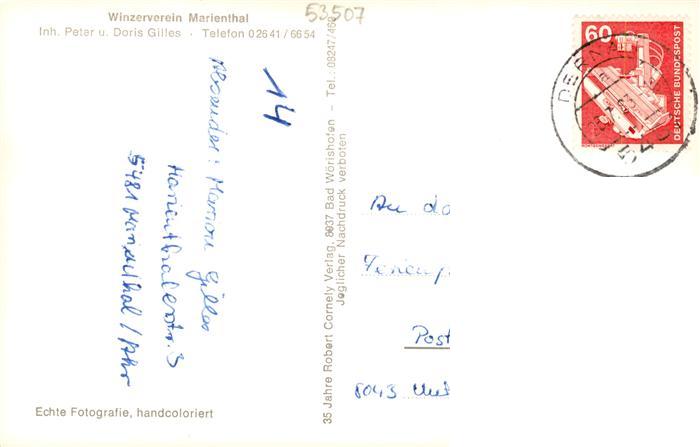 Winzerverein Marienthal
Inh. Peter u. Doris Gilles · Telefon 02641/6654
53507
14
Absender: Marion Gilles
Marienthalerstr. 3
5481 Marienthal/Ahr
Echte Fotografie, handcoloriert
35 Jahre Robert Cornely Verlag, 8937 Bad Wörishofen – Tel.: 08247/469
Jeglicher Nachdruck verboten
60
DEUTSCHE BUNDESPOST
An da
Post
8043